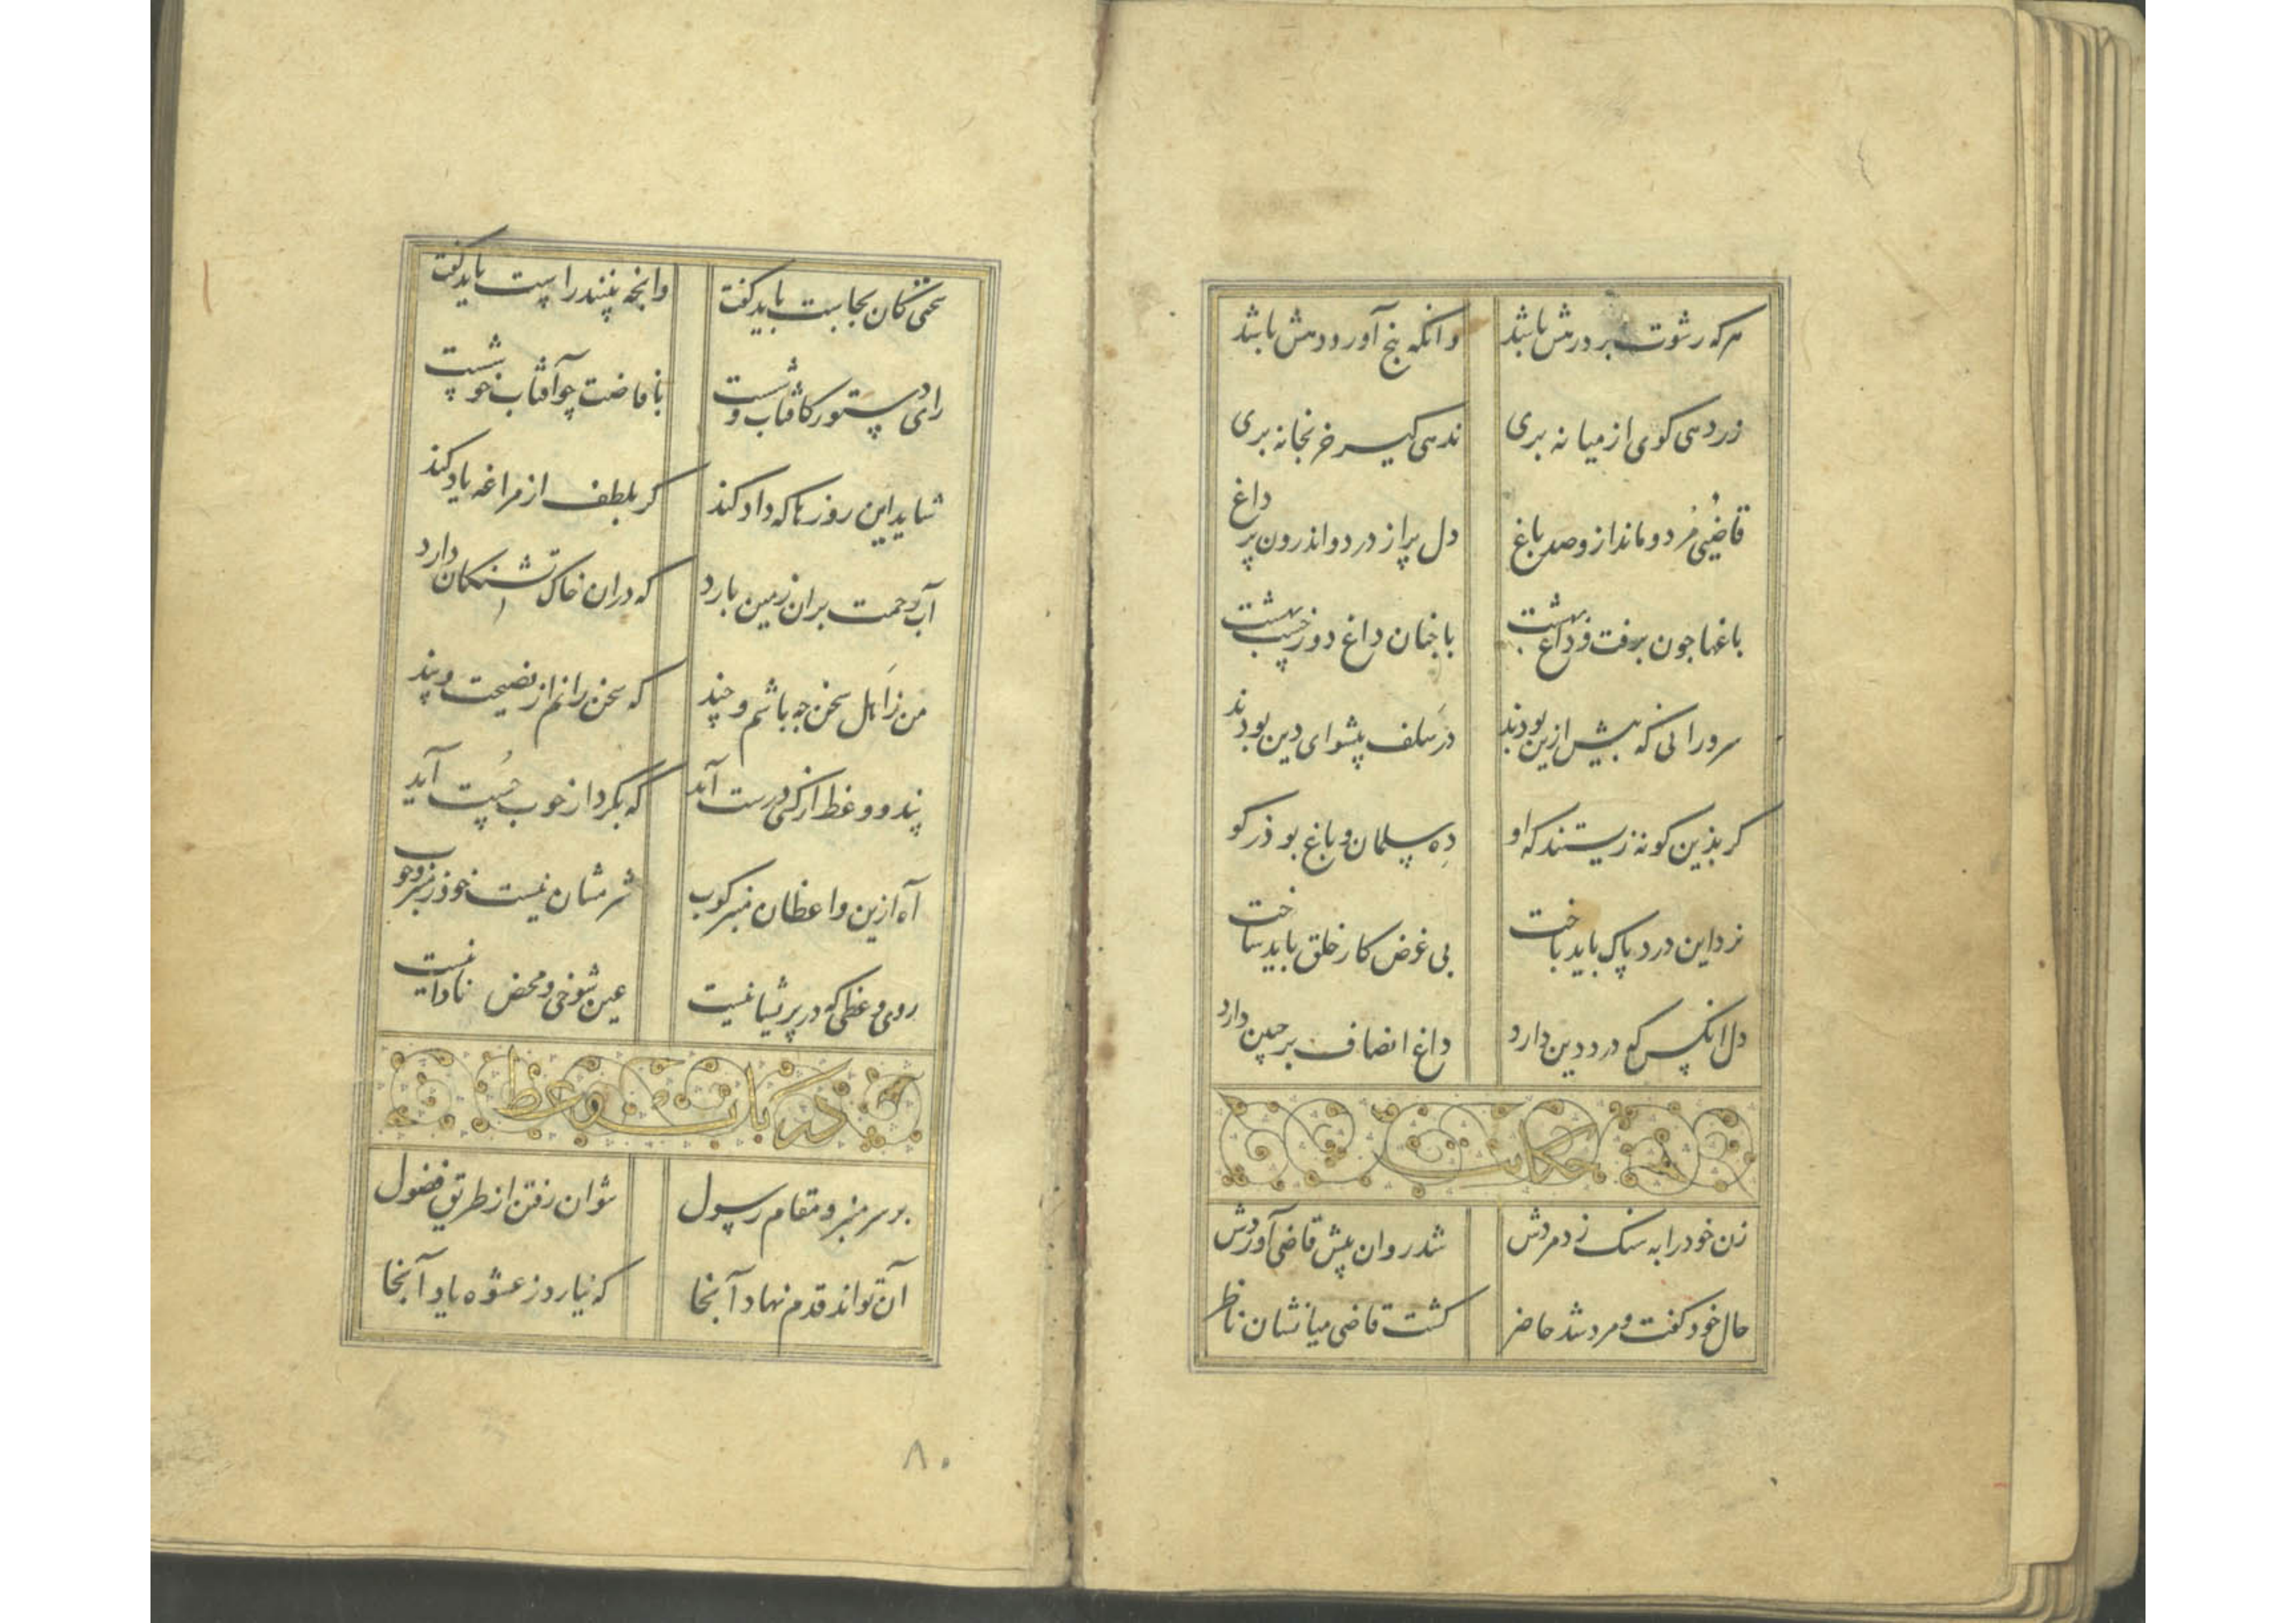 هرکه رشوت برد رهش باشد وانکه بنج آورد دهش باشد
زر دهی کوی از میانه بری ندهی کیر خر بخانه بری
قاضیی مُرد و ماند ازو صد باغ دل پر از درد و اندرون پر داغ
باغها جون برفت و داغ بهشت باجنان داغ دور حسب بهشت
سرورانی که پیش ازین بودند در سلف پیشوای دین بودند
کر بذین کونه زیستند که او دِه سلمان و باغ بوذر کو
نرد این درد پاک باید باخت بی غرض کار خلق باید ساخت
دل انکس که درد دین دارد داغ انصاف بر جبین دارد
حکایت
زن خود را به سنک زد مردش شد روان پیش قاضی آوردش
حال خود کفت و مرد شد حاضر کشت قاضی میانشان ناظر
سخنی کان بجاست باید کفت وانجه بینند راست باید کفت
رای دستور کافتاب وشست بافاضت چو آفتاب خوشست
شاید این روزها که داد کند کر بلطف از مراغه یاد کند
آب رحمت بران زمین بارد که دران خاک تشنکان دارد
من زاهل سخن جه باشم و چند که سخن رانم از نصیحت و پند
پند و وعظ از کسی درست آید که بکردار خوب جست آید
آه ازین واعظان منبر کوب شرمشان نیست خود ز منبر و جوب
روی وعظی که در پریشانیست عین شوخی و محض نادانیست
در کتاب و وعظ
بر سر منبر و مقام رسول نتوان رفتن از طریق فضول
آن تواند قدم نهاد آنجا که نیارد ز عشوه یاد آنجا
۸۰